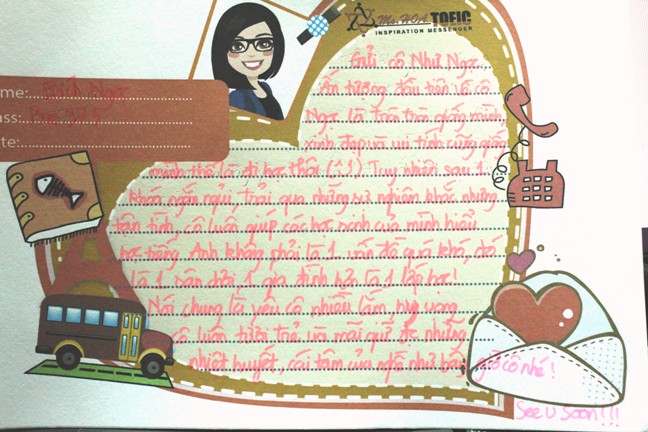 Ms. HOA TOEIC
INSPIRATION MESSENGER
me: Bích Ngọc
ass:
te:
Gửi cô Như Ngọc
Ấn tượng đầu tiên về cô
Ngọc là tròn trịa giống mình,
xinh đẹp và vui tính cũng giống
mình thế là đi học thôi (^.^) Tuy nhiên sau 1
khoá ngắn ngủi, trải qua những sự nghiêm khắc nhưng
tận tình, cô luôn giúp các học sinh của mình hiểu
học tiếng Anh không phải là 1 vấn đề quá khó, đó
là 1 sân chơi, 1 gia đình hơn là 1 lớp học!
Nói chung là yêu cô nhiều lắm, hy vọng
cô luôn tươi trẻ và mãi giữ đc những
nhiệt huyết, cái tâm của nghề như bây giờ cô nhé!
See U soon!!!